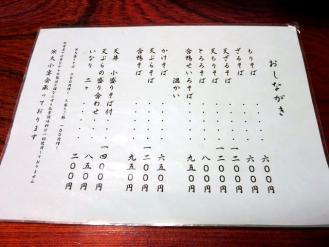 おしながき
もりそば ・・・・ 六〇〇円
ざるそば ・・・・ 六〇〇円
天ざるそば ・・・・ 一二〇〇円
天もりそば ・・・・ 一二〇〇円
とろろそば ・・・・ 八〇〇円
合鴨せいろそば ・・・・ 九五〇円
温かい
かけそば ・・・・ 六五〇円
天ぷらそば ・・・・ 一二〇〇円
合鴨そば ・・・・ 九五〇円
天丼 小盛りそば付 ・・・ 一四〇〇円
天ぷらの盛り合わせ ・・・ 八五〇円
いなり 二ヶ ・・・・ 二〇〇円
※大小宴会承っております